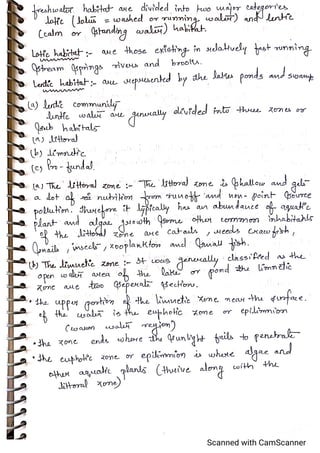 freshwater habitat are divided into two major categories
lotic (lotus = washed or running water) and lentic
(calm or standing water) habitat.
Lotic habitat :- are those existing in relatively fast running
stream springs rivers and brooks.
Lentic habitat :- are represented by the lakes ponds and swamp
(a) lentic community
lentic water are generally divided into three zones or
sub habitats
(a) littoral
(b) limnetic
(c) Pro-fundal.
(a) The littoral zone :- The littoral zone is shallow and gets
a lot of nutrition from runoff and non-point source
pollution. Therefore it typically has an abundance of aquatic
plant and algae growth some other common inhabitants
of the littoral zone are cattails, reeds crawfish,
snails, insects, zooplankton and small fish.
(b) The limnetic zone :- It was generally classified as the
open water area of the lake or pond the limnetic
zone are two seperate section.
• The upper portion of the limnetic zone near the surface.
of the water is the euphotic zone or epilimnion
(warm water region)
• The zone ends where the sunlight fails to penetrate
• The euphotic zone or epilimnion is where algae and
other aquatic plants (thrive along with the
littoral zone)
Scanned with CamScanner